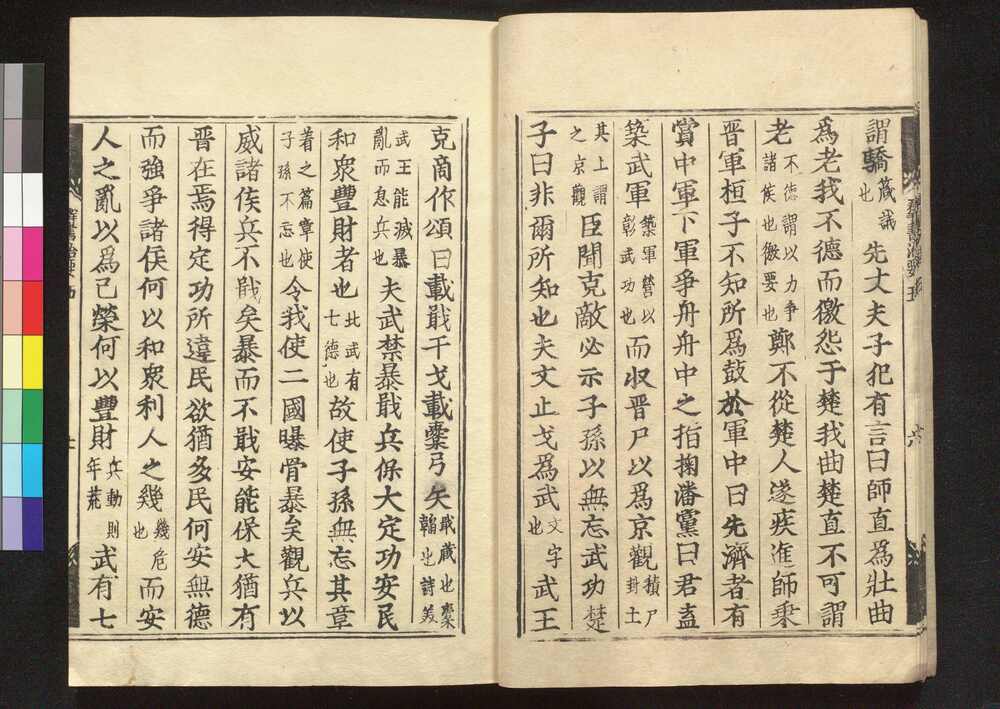 謂驕箴誡也先丈夫子犯有言曰師直為壯曲
為老我不德而徼怨于楚我曲楚直不可謂
老不德謂以力爭諸侯也徼要也鄭不從楚人遂疾進師乘
晉軍桓子不知所為鼓於軍中曰先濟者有
賞中軍下軍爭舟舟中之指掬潘黨曰君盍
築武軍築軍營以彰武功也而収晉尸以為京觀積尸封土
其上謂之京觀臣聞克敵必示子孫以無忘武功楚
子曰非爾所知也夫文止戈為武文字也武王
克商作頌曰載戢干戈載櫜弓矢戢藏也櫜韜也詩美
武王能滅暴亂而息兵也夫武禁暴戢兵保大定功安民
和衆豐財者也此武有七德也故使子孫無忘其章
著之篇章使子孫不忘也今我使二國曝骨暴矣觀兵以
威諸侯兵不戢矣暴而不戢安能保大猶有
晉在焉得定功所違民欲猶多民何安無德
而強爭諸侯何以和衆利人之幾幾危也而安
人之亂以為己榮何以豐財兵動則年荒武有七
群書治要五
六